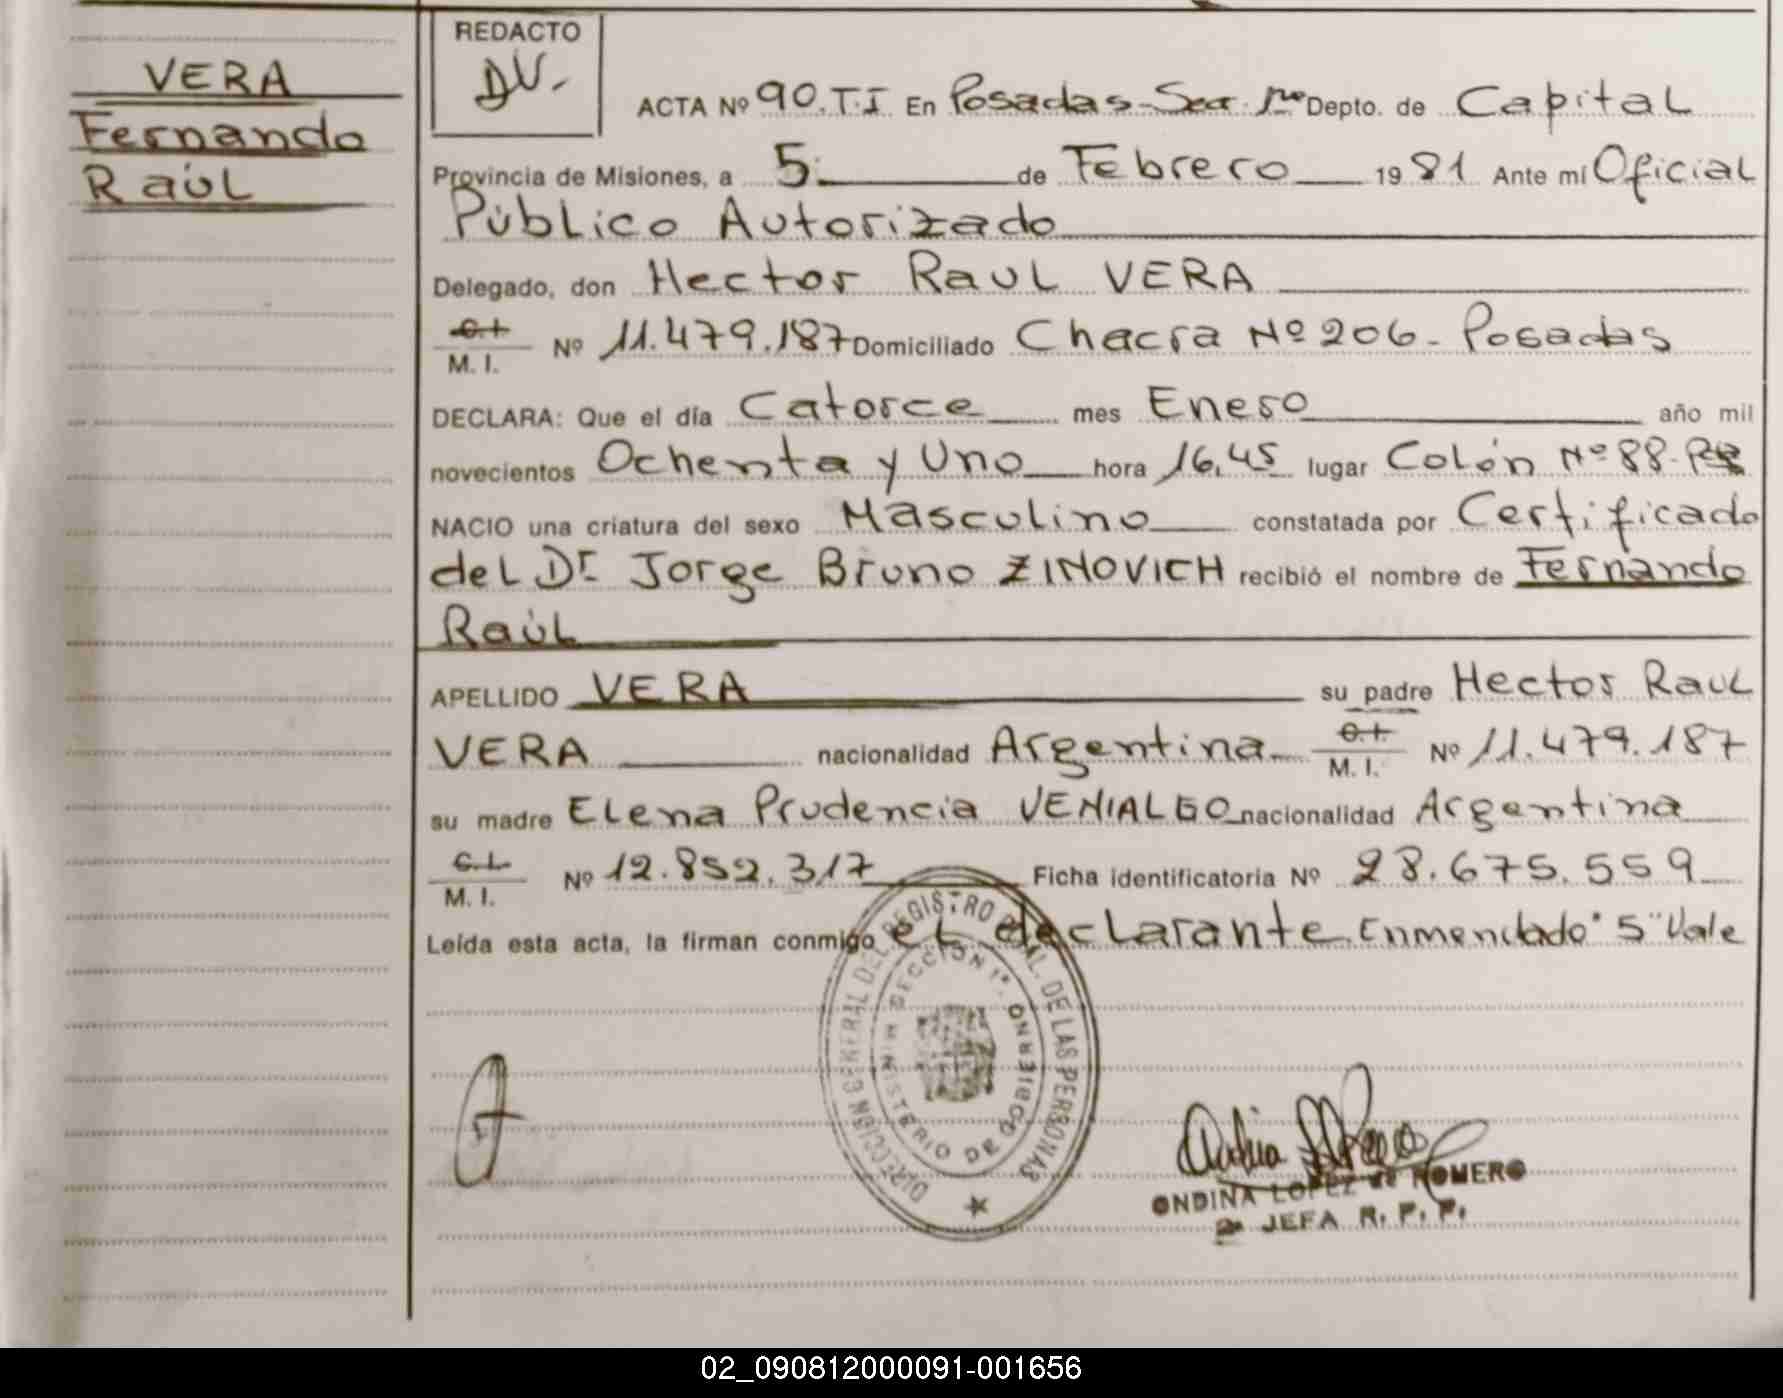 VERA
Fernando
Raúl
REDACTO
DV.
ACTA Nº 90.T.I En Posadas-Secc. 1ra Depto. de Capital
Provincia de Misiones, a 5 de Febrero 1981 Ante mí Oficial
Público Autorizado
Delegado, don Hector Raul VERA
C.I. M.I. Nº 11.479.187 Domiciliado Chacra Nº 206- Posadas
DECLARA: Que el día Catorce mes Enero año mil
novecientos Ochenta y Uno hora 16,45 lugar Colón Nº 88-
NACIO una criatura del sexo Masculino constatada por Certificado
del Dr. Jorge Bruno ZINOVICH recibió el nombre de Fernando
Raúl
APELLIDO VERA su padre Hector Raul
VERA nacionalidad Argentina C.I. M.I. Nº 11.479.187
su madre Elena Prudencia VENIALGO nacionalidad Argentina
C.I. M.I. Nº 12.852.317 Ficha identificatoria Nº 28.675.559
Leída esta acta, la firman conmigo el declarante. Enmendado "5" Vale
DIRECCION GENERAL DEL REGISTRO PCIAL. DE LAS PERSONAS
SECCION 1ª. MINISTERIO DE GOBIERNO
ONDINA LOPEZ de ROMERO
JEFA R. P. P.
02_090812000091-001656